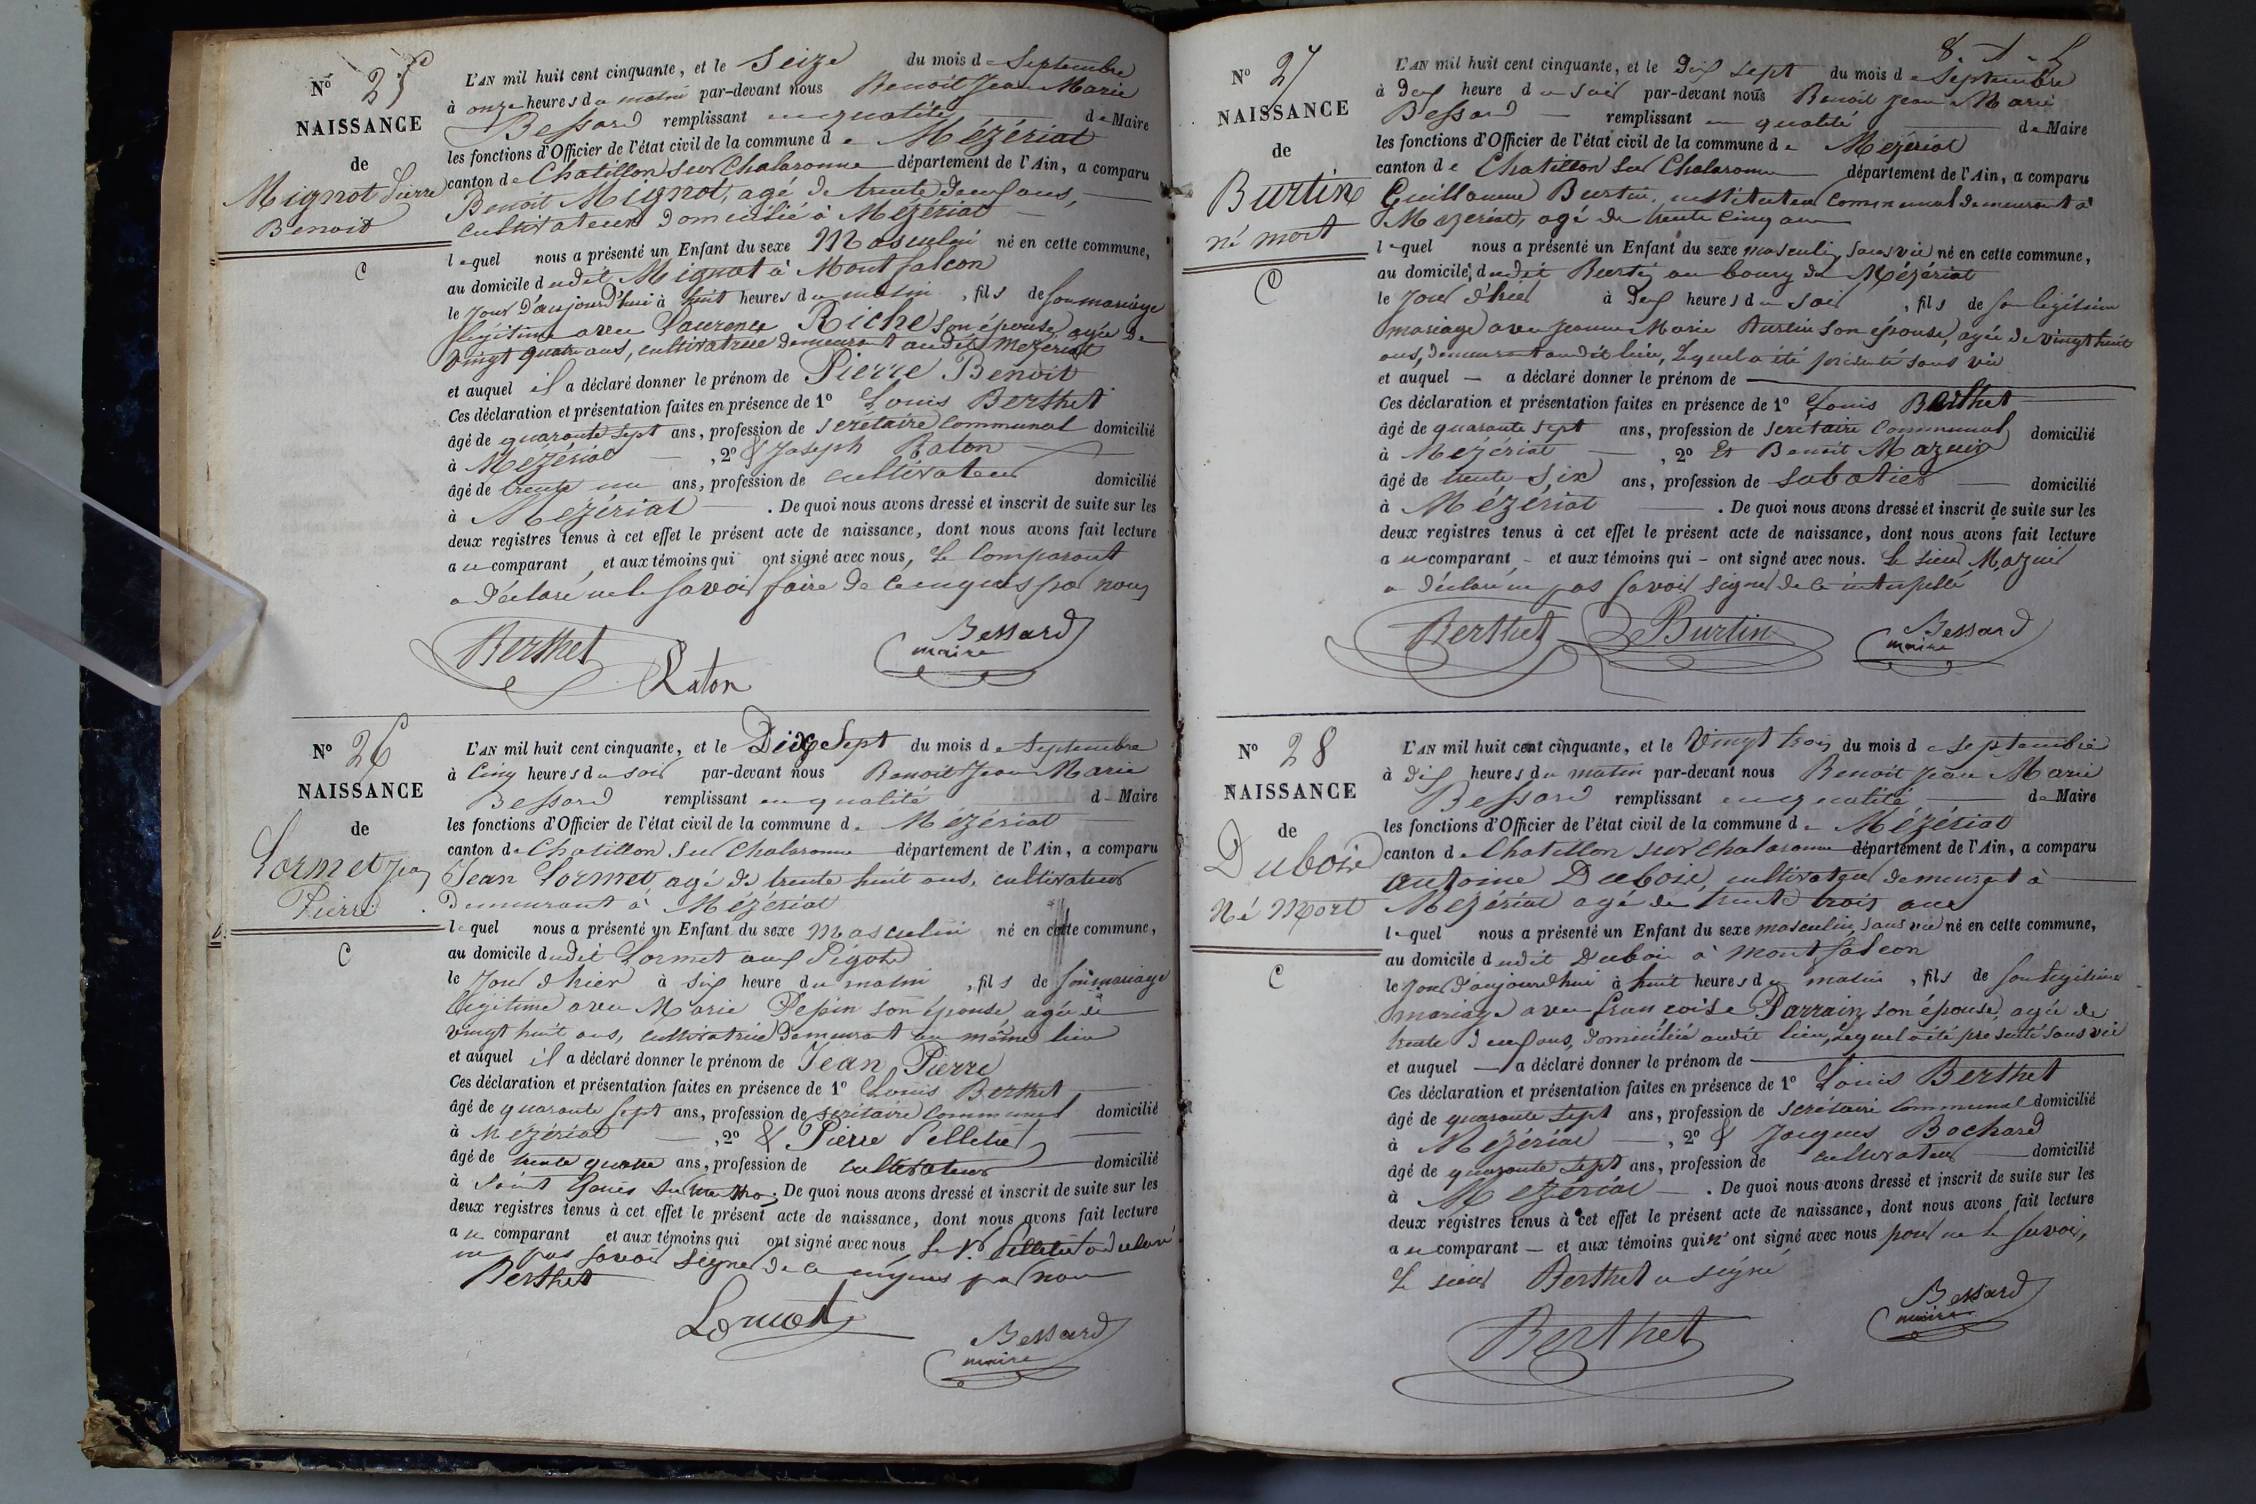 Nº 25
NAISSANCE
de
Mignot Pierre
Benoit
C
L'AN mil huit cent cinquante, et le Seize du mois de Septembre
à onze heures du matin par-devant nous Benoit Jean Marie
Bessard remplissant en qualité de Maire
les fonctions d'Officier de l'état civil de la commune de Mézériat
canton de Chatillon sur Chalaronne département de l'Ain, a comparu
Benoit Mignot, agé de trente deux ans,
cultivateur domicilié à Mézériat
lequel nous a présenté un Enfant du sexe Masculin né en cette commune,
au domicile dudit Mignot à Montfalcon
le jour d'aujourd'hui à huit heures du matin, fils de son mariage
légitime avec Laurence Riche son épouse, agée de
vingt quatre ans, cultivatrice demeurant audit Mézériat
et auquel il a déclaré donner le prénom de Pierre Benoit
Ces déclaration et présentation faites en présence de 1º Louis Berthet
âgé de quarante sept ans, profession de secrétaire communal domicilié
à Mézériat, 2º & Joseph Raton
âgé de trente un ans, profession de cultivateur domicilié
à Mézériat. De quoi nous avons dressé et inscrit de suite sur les
deux registres tenus à cet effet le présent acte de naissance, dont nous avons fait lecture
au comparant, et aux témoins qui ont signé avec nous, Le Comparant
a déclaré ne le savoir faire de ce enquis par nous
Berthet
Raton
Bessard
maire
Nº 26
NAISSANCE
de
Lormet Jean
Pierre
C
L'AN mil huit cent cinquante, et le Dix Sept du mois de Septembre
à Cinq heures du soir par-devant nous Benoit Jean Marie
Bessard remplissant en qualité d Maire
les fonctions d'Officier de l'état civil de la commune de Mézériat
canton de Chatillon sur Chalaronne département de l'Ain, a comparu
Jean Lormet agé de trente huit ans, cultivateur
demeurant à Mézériat
lequel nous a présenté un Enfant du sexe Masculin né en cette commune,
au domicile dudit Lormet aux
le jour d'hier à six heure du matin, fils de son mariage
légitime avec Marie Pepin son épouse, agée de
vingt huit ans, cultivatrice demeurant au même lieu
et auquel il a déclaré donner le prénom de Jean Pierre
Ces déclaration et présentation faites en présence de 1º Louis Berthet
âgé de quarante sept ans, profession de secrétaire communal domicilié
à Mézériat, 2º & Pierre Pelletier
âgé de trente quatre ans, profession de cultivateur domicilié
à Saint. De quoi nous avons dressé et inscrit de suite sur les
deux registres tenus à cet effet le présent acte de naissance, dont nous avons fait lecture
au comparant et aux témoins qui ont signé avec nous Le Sr. Pelletier a déclaré
ne pas savoir signer de ce enquis par nous
Berthet
Lormet
Bessard
maire
Nº 27
NAISSANCE
de
Burtin
né mort
C
L'AN mil huit cent cinquante, et le dix sept du mois de Septembre
à deux heure du soir par-devant nous Benoit Jean Marie
Bessard remplissant en qualité de Maire
les fonctions d'Officier de l'état civil de la commune de Mézériat
canton de Chatillon sur Chalaronne département de l'Ain, a comparu
Guillaume Burtin, instituteur communal demeurant à
Mézériat, agé de trente cinq ans
lequel nous a présenté un Enfant du sexe masculin, sans vie né en cette commune,
au domicile, dudit Burtin au bourg de Mézériat
le jour d'hier à deux heures du soir, fils de son légitime
mariage avec Jeanne Marie Burtin son épouse, agée de vingt huit
ans, demeurant audit lieu, Lequel a été présenté sans vie
et auquel — a déclaré donner le prénom de —
Ces déclaration et présentation faites en présence de 1º Louis Berthet
âgé de quarante sept ans, profession de secrétaire communal domicilié
à Mézériat, 2º Et Benoit Mazuir
âgé de trente six ans, profession de sabotier domicilié
à Mézériat. De quoi nous avons dressé et inscrit de suite sur les
deux registres tenus à cet effet le présent acte de naissance, dont nous avons fait lecture
au comparant – et aux témoins qui – ont signé avec nous. Le sieur Mazuir
a déclaré ne pas savoir signer de ce interpellé
Berthet
Burtin
Bessard
maire
Nº 28
NAISSANCE
de
Dubois
Né Mort
C
L'AN mil huit cent cinquante, et le Vingt trois du mois de Septembre
à dix heures du matin par-devant nous Benoit Jean Marie
Bessard remplissant en qualité de Maire
les fonctions d'Officier de l'état civil de la commune de Mézériat
canton de Chatillon sur Chalaronne département de l'Ain, a comparu
Antoine Dubois, cultivateur demeurant à
Mézériat agé de trente trois ans
lequel nous a présenté un Enfant du sexe masculin, sans vie né en cette commune,
au domicile dudit Dubois à Montfalcon
le jour d'aujourd'hui à huit heures du matin, fils de son légitime
mariage avec Françoise Parrain son épouse, agée de
trente deux ans, domiciliée audit lieu, Lequel a été présenté sans vie
et auquel — a déclaré donner le prénom de —
Ces déclaration et présentation faites en présence de 1º Louis Berthet
âgé de quarante sept ans, profession de secrétaire communal domicilié
à Mézériat —, 2º & Jacques Bochard
âgé de quarante sept ans, profession de cultivateur domicilié
à Mézériat —. De quoi nous avons dressé et inscrit de suite sur les
deux registres tenus à cet effet le présent acte de naissance, dont nous avons fait lecture
au comparant — et aux témoins qui n'ont signé avec nous pour ne le savoir,
Le sieur Berthet a signé
Berthet
Bessard
maire